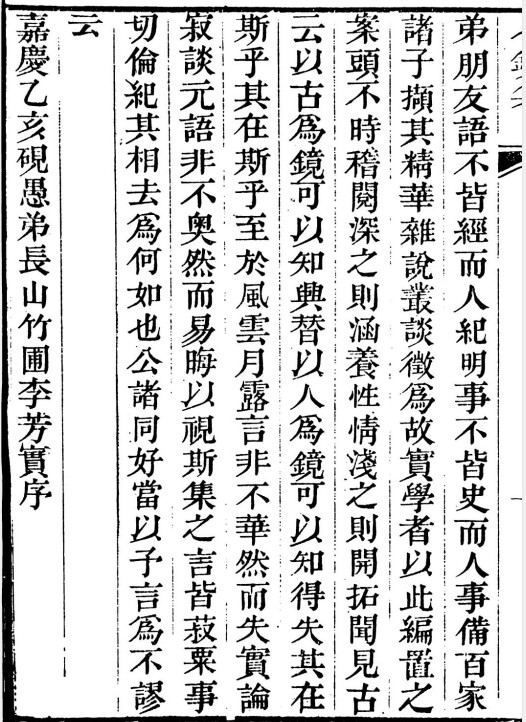 弟朋友語不皆經而人紀明事不皆史而人事備百家
諸子擷其精華雜說叢談徵爲故實學者以此編置之
案頭不時稽閱深之則涵養性情淺之則開拓聞見古
云以古爲鏡可以知興替以人爲鏡可以知得失其在
斯乎其在斯乎至於風雲月露言非不華然而失實論
寂談元語非不奧然而易晦以視斯集之言皆菽粟事
切倫紀其相去爲何如也公諸同好當以予言爲不謬
云
嘉慶乙亥硯愚弟長山竹圃李芳實序